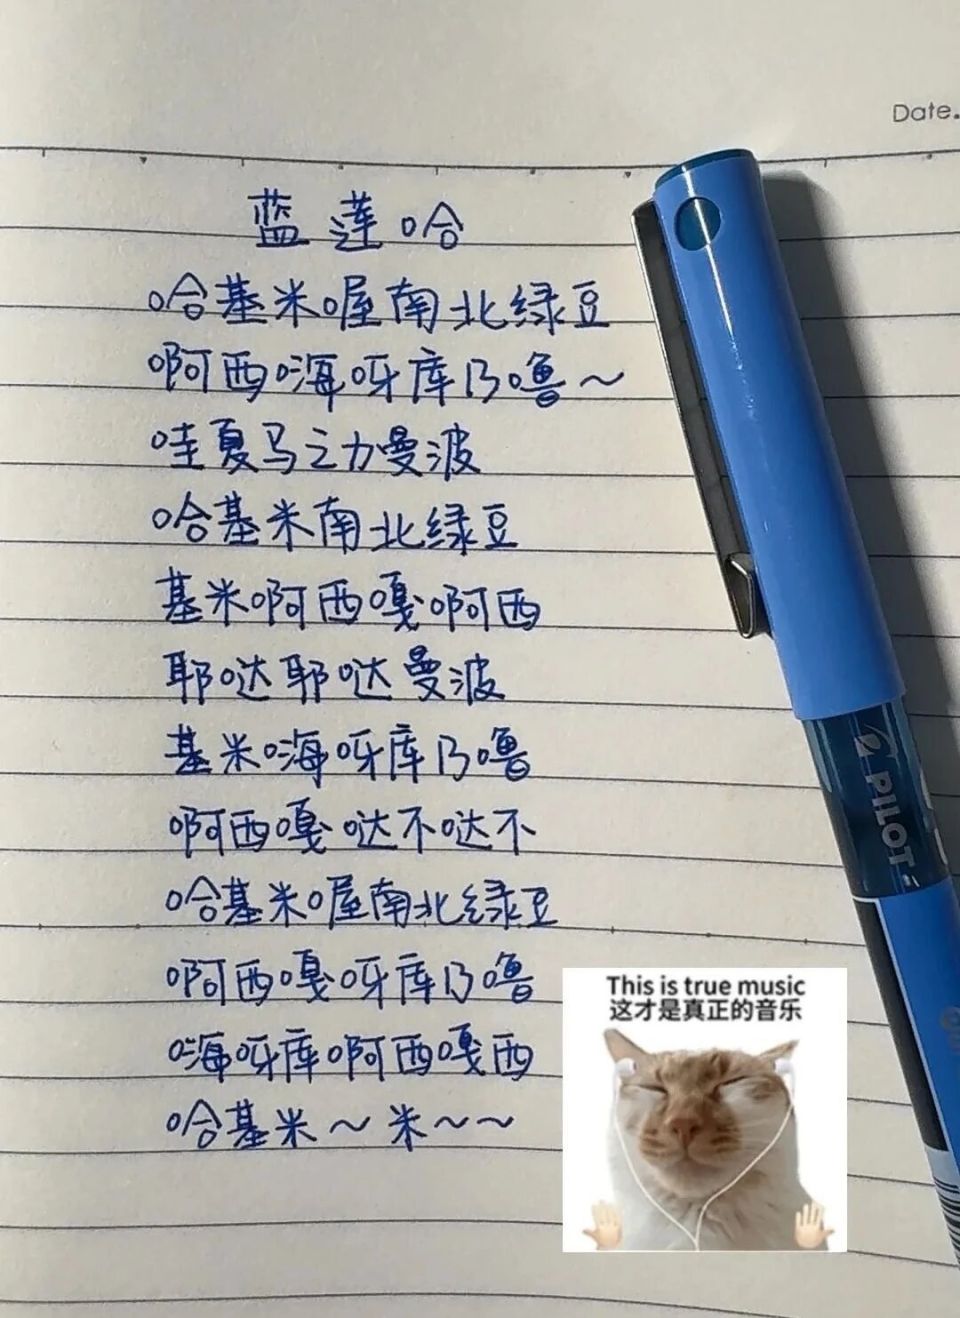 Date.
蓝莲哈
哈基米喔南北绿豆
啊西嗨呀库乃噜～
哇夏马之力曼波
哈基米南北绿豆
基米啊西嘎啊西
耶哒耶哒曼波
基米嗨呀库乃噜
啊西嘎哒不哒不
哈基米喔南北绿豆
啊西嘎呀库乃噜
嗨呀库啊西嘎西
哈基米～米～～
PILOT
This is true music
这才是真正的音乐